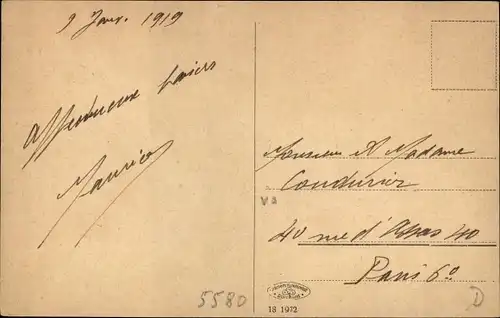 9 Janv. 1919
Affectueux baisers
Maurice
Monsieur et Madame
Condurier
40 rue d'Assas 40
Paris 6e
5580
18 1972
D